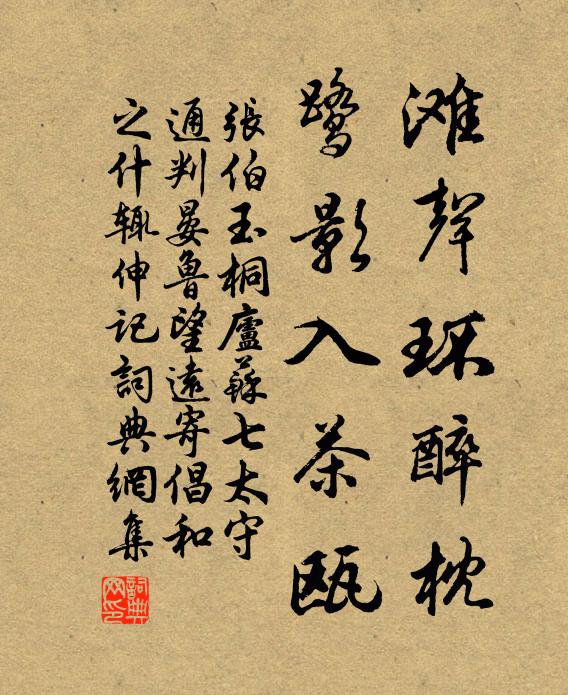 滩聲环醉枕
鹭影入茶瓯
張伯玉桐廬蘇七太守
通判晏魯望遠寄倡和
之什輒伸記詞典網集